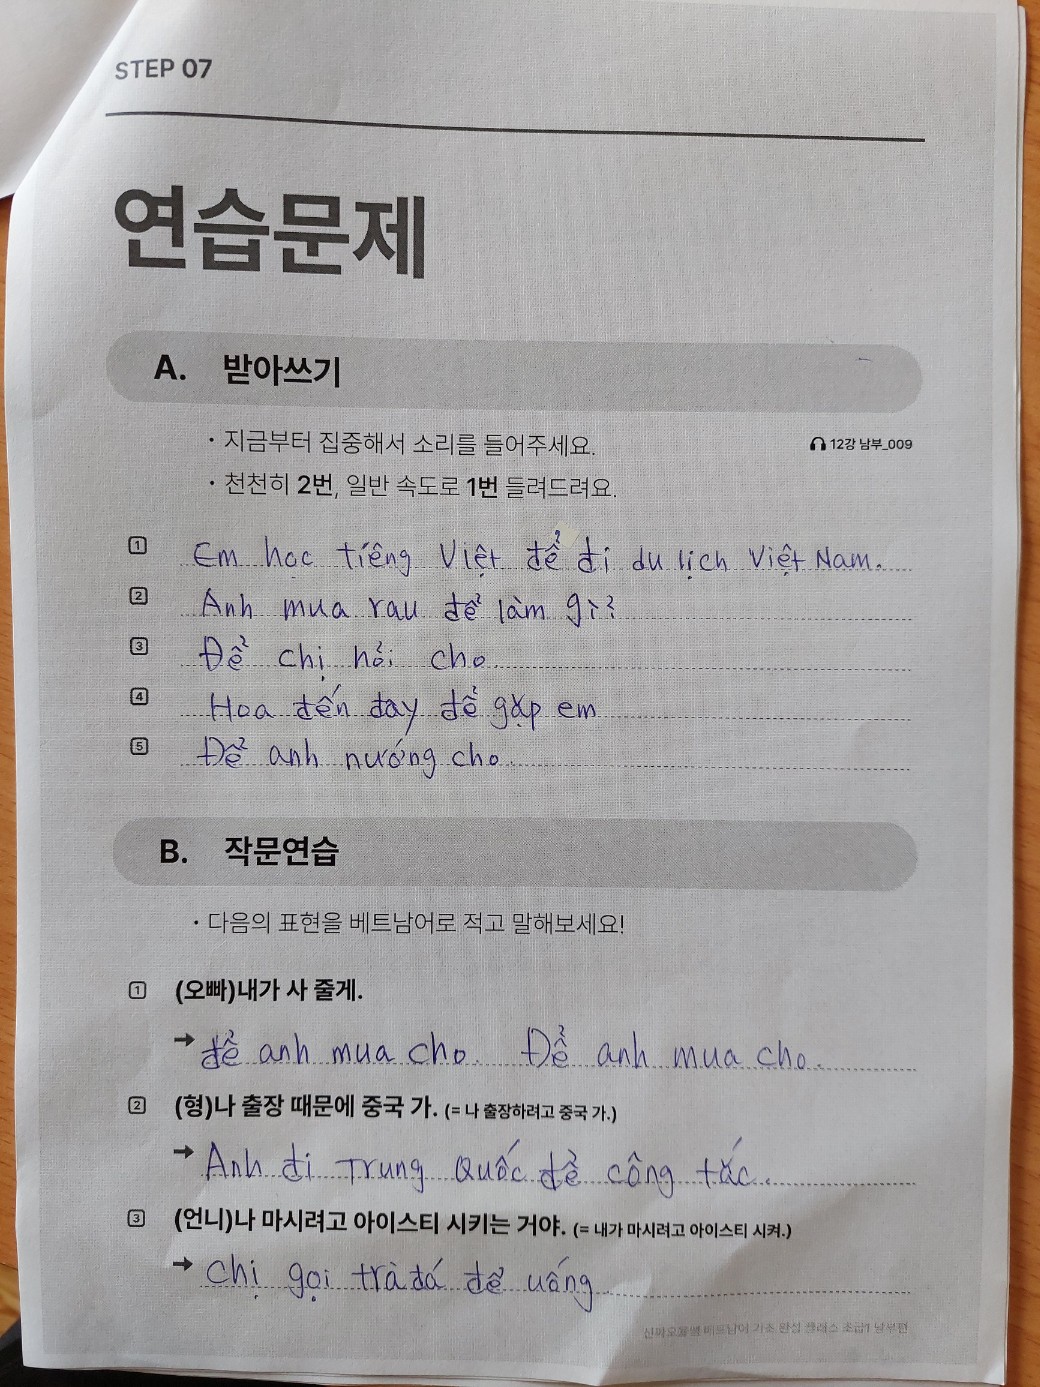 STEP 07
연습문제
A. 받아쓰기
· 지금부터 집중해서 소리를 들어주세요.
12강 남부_009
· 천천히 2번, 일반 속도로 1번 들려드려요.
1 Em học tiếng Việt để đi du lịch Việt Nam.
2 Anh mua rau để làm gì?
3 Để chị hỏi cho.
4 Hoa đến đay để gặp em
5 Để anh nướng cho.
B. 작문연습
· 다음의 표현을 베트남어로 적고 말해보세요!
1 (오빠)내가 사 줄게.
→ để anh mua cho. Để anh mua cho.
2 (형)나 출장 때문에 중국 가. (= 나 출장하려고 중국 가.)
→ Anh đi Trung Quốc để công tắc.
3 (언니)나 마시려고 아이스티 시키는 거야. (= 내가 마시려고 아이스티 시켜.)
→ Chị gọi trà đá để uống
베트남어 기초 완성 플러스 초급1 남부편